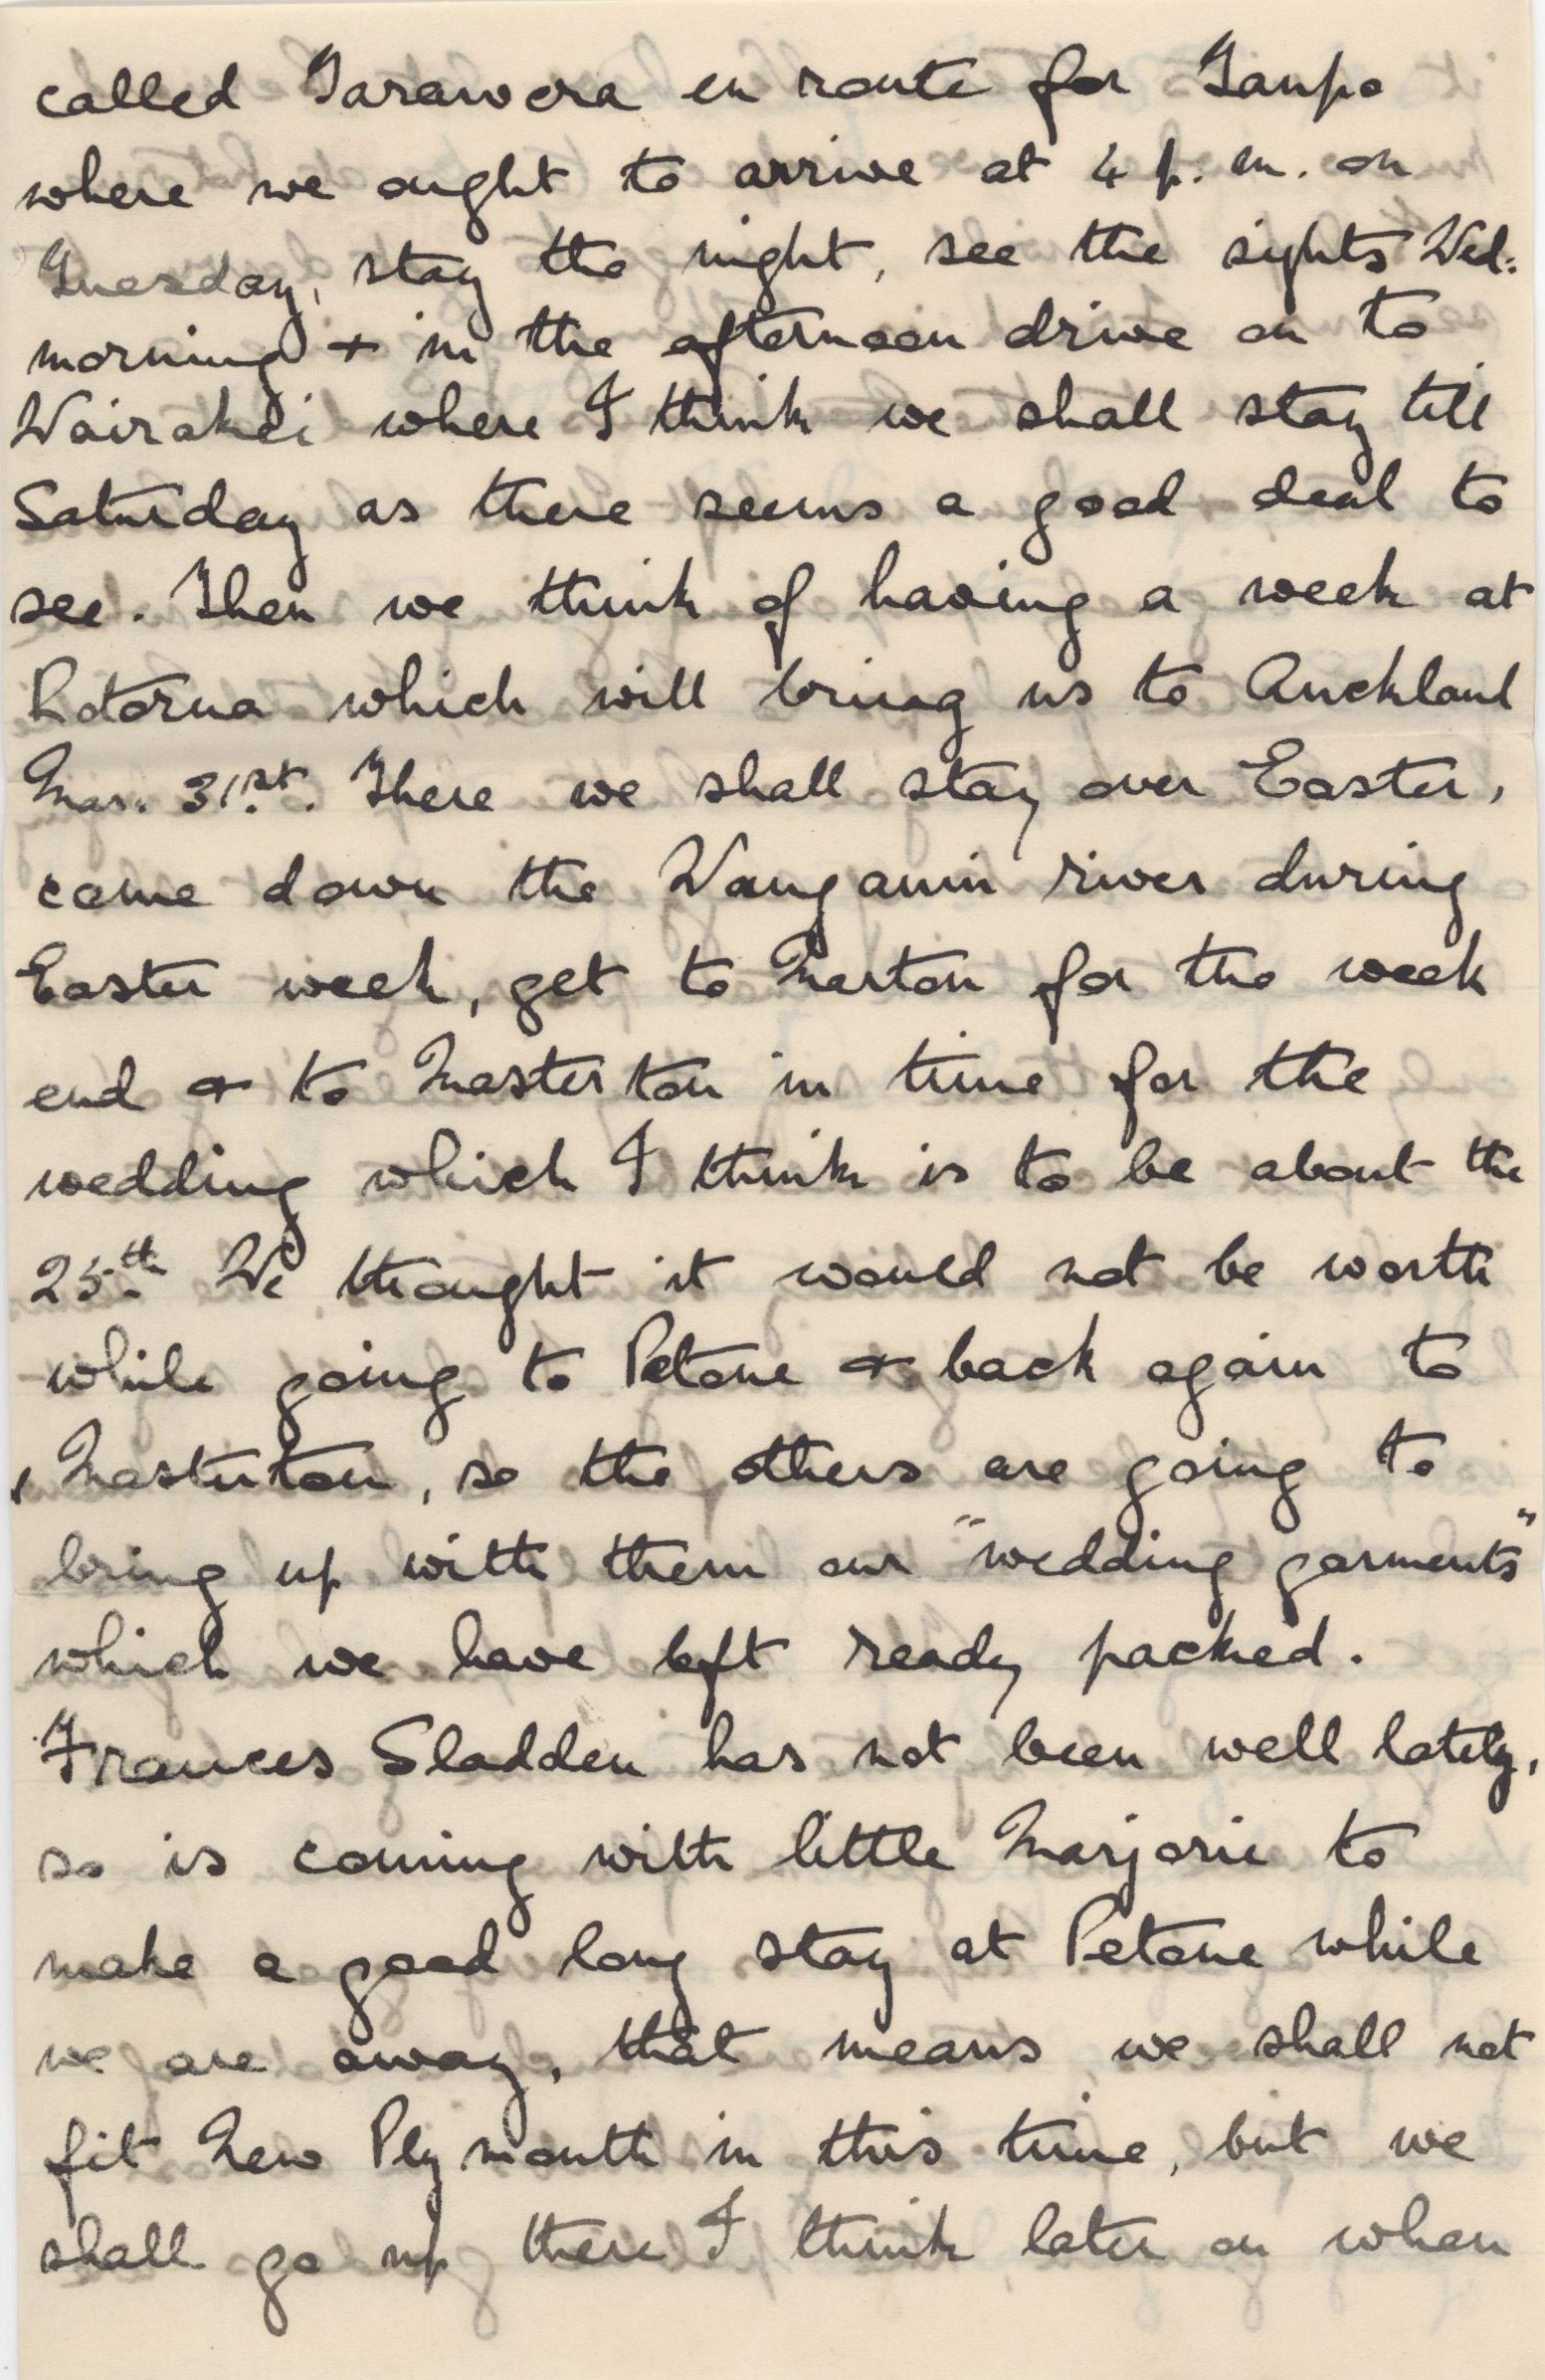 called Tarawera en route for Taupo
where we ought to arrive at 4 p.m. on
Tuesday, stay the night, see the sights Wed:
morning + in the afternoon drive on to
Wairakei where I think we shall stay till
Saturday as there seems a good deal to
see. Then we think of having a week at
Rotorua which will bring us to Auckland
Mar. 31st. There we shall stay over Easter,
come down the Wanganui river during
Easter week, get to Marton for the week
end + to Masterton in time for the
wedding which I think is to be about the
25th. We thought it would not be worth
while going to Petone + back again to
Masterton, so the others are going to
bring up with them our "wedding garments"
which we have left ready packed.
Frances Sladden has not been well lately,
so is coming with little Marjorie to
make a good long stay at Petone while
we are away, that means we shall not
fit New Plymouth in this time, but we
shall go up there I think later on when